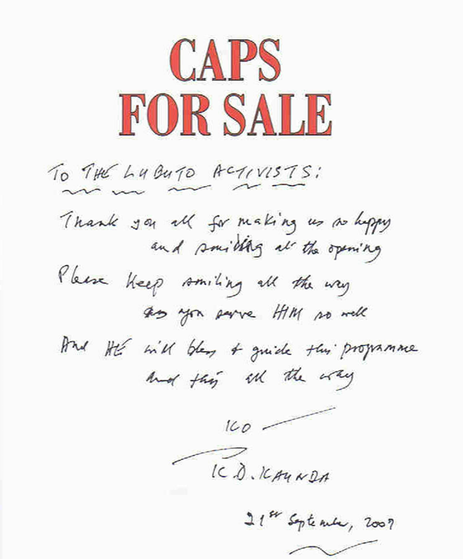 CAPS
FOR SALE
TO THE LUBUTO ACTIVISTS:
Thank you all for making us so happy
and smiling at the opening
Please keep smiling all the way
as you serve HIM so well
And HE will bless & guide this programme
and this all the way
KD
K.D. KAUNDA
21st September, 2007